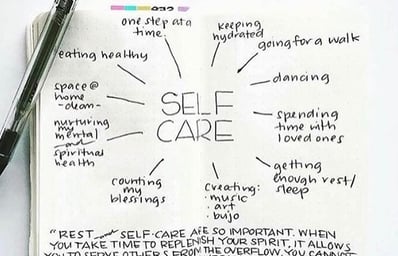 one step at a
time.
keeping
hydrated
going for a walk
eating healthy
dancing
space @
home
-clean-
SELF
CARE
spending
time with
loved ones
nurturing
my
mental
and
spiritual
health
getting
enough rest/
sleep
counting
my
blessings
creating:
• music
• art
• bujo
"REST and SELF-CARE ARE SO IMPORTANT. WHEN
YOU TAKE TIME TO REPLENISH YOUR SPIRIT, IT ALLOWS
YOU TO SERVE OTHERS FROM THE OVERFLOW. YOU CANNOT